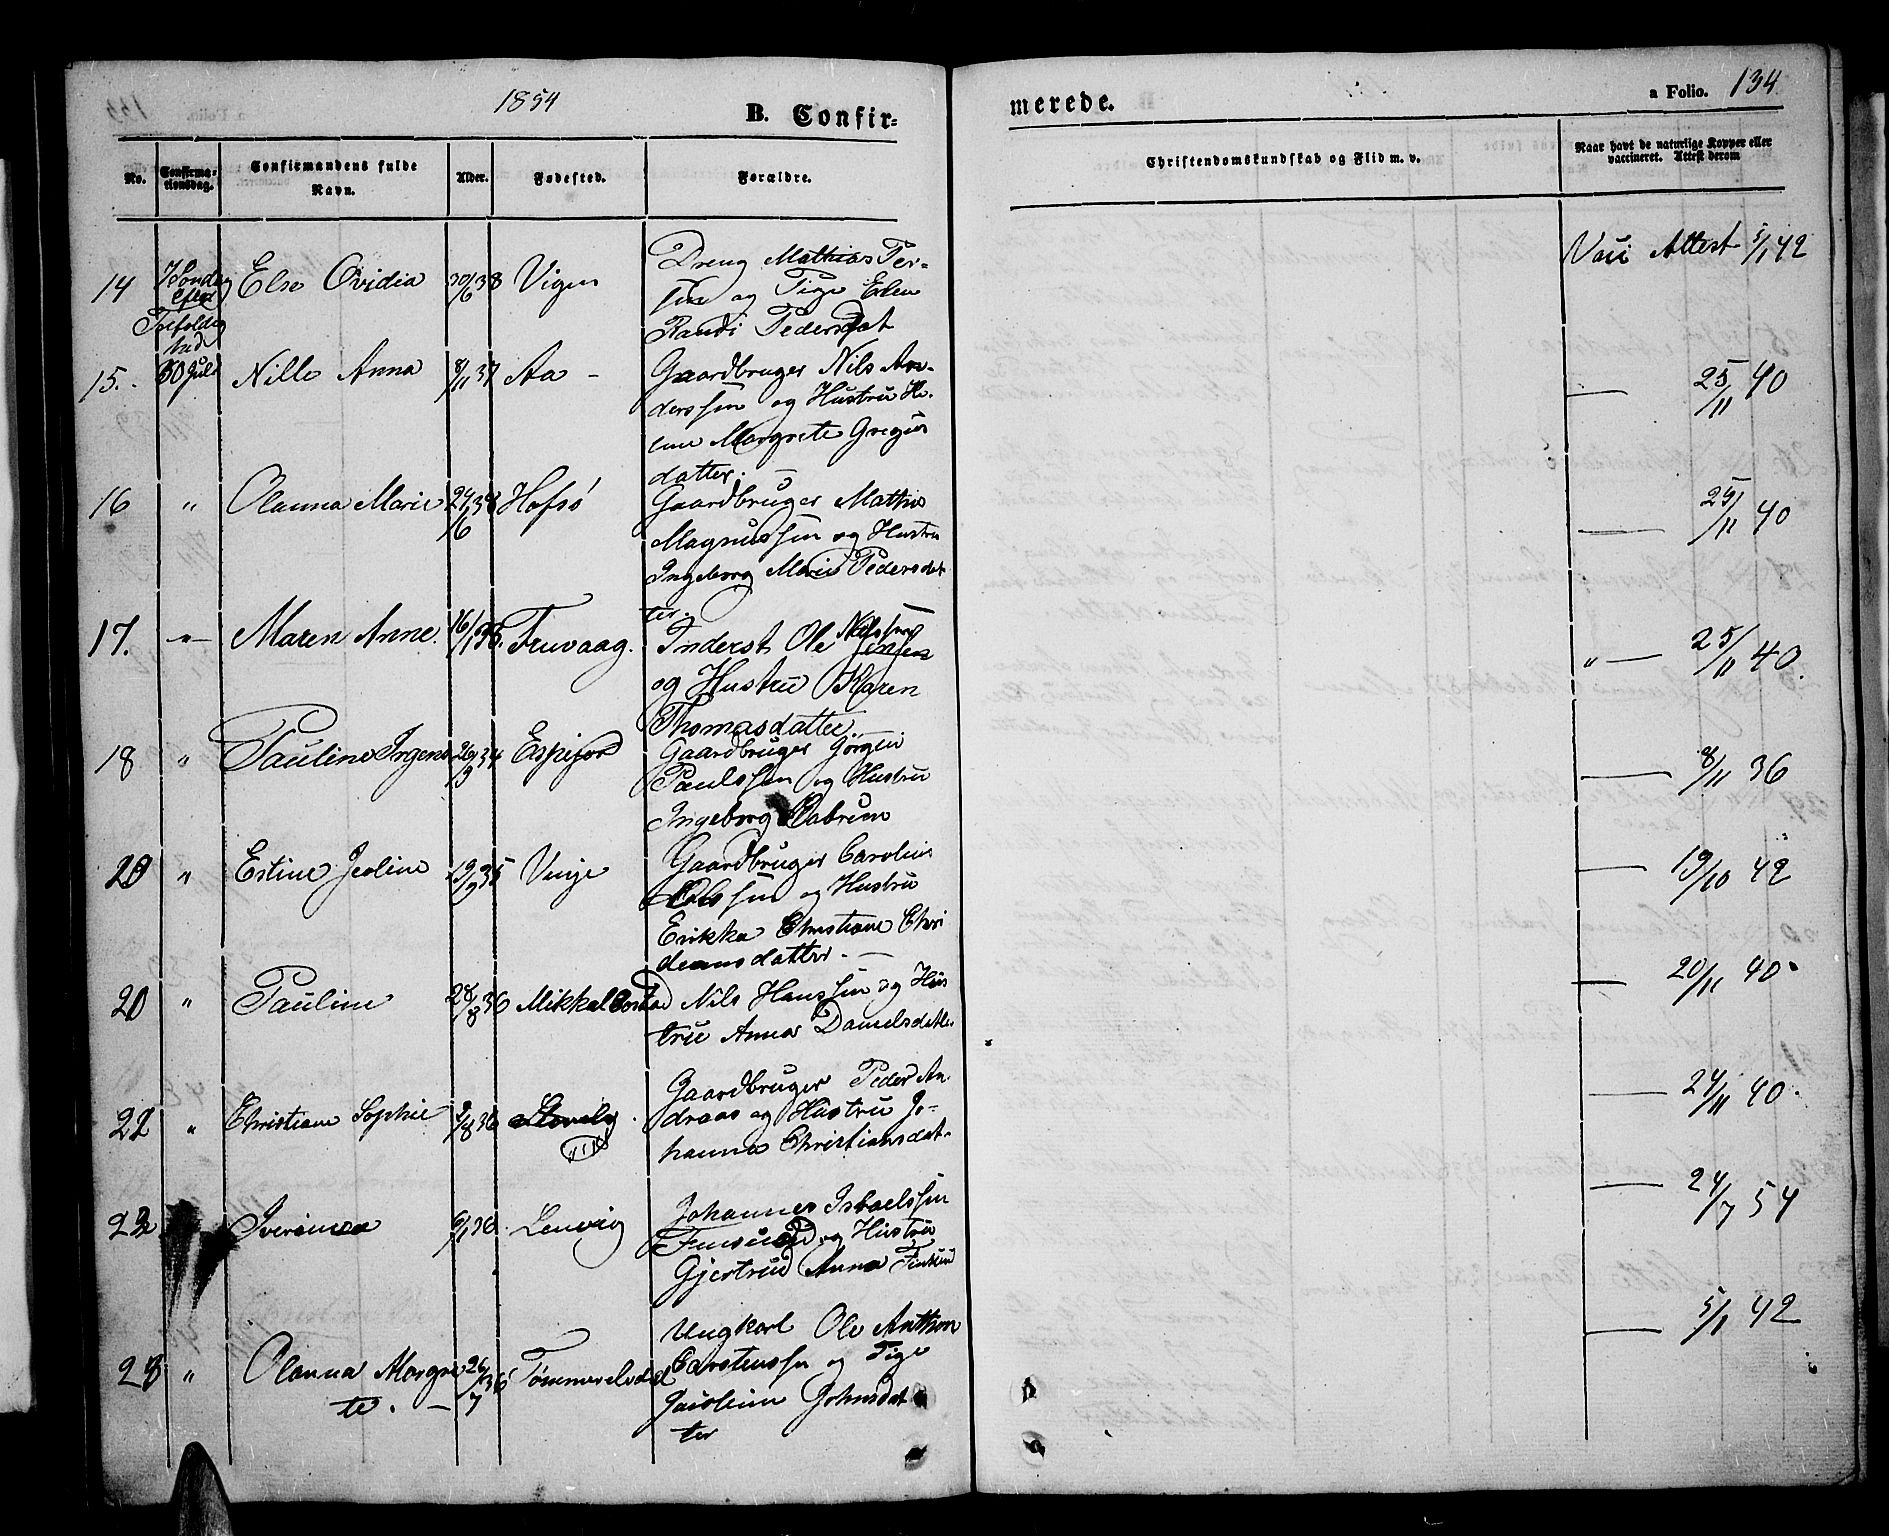 1854
B. Confir-
merede.
a Folio. 134
No.
Confirma-
tionsdag.
Confirmandens fulde
Navn.
Alder.
Fødested.
Forældre.
Christendomskundskab og Flid m. v.
Naar havt de naturlige Kopper eller
vaccineret. Attest derom
14 Else Ovidia 30/6 38 Vigen Dreng Mathias Per-
efter
sen og Pige Elen
Randi Pedersdat
Attest 5/1 42
15. 30 Juli Nille Anna 8/11 37 Aa - Gaardbruger Nils An-
derssen og Hustru He-
lene Margrete Gregus
datter.
— 25/11 40
16 " Olanna Marie 24/6 38 Hofsö Gaardbruger Mathis
Magnussen og Hustru
Ingeborg Marie Pedersdat
ter.
— 25/11 40
17. -"- Maren Anne. 16/1 38. Truvaag. Inderst Ole Nilssen
og Hustru Karen
Thomasdatter
" — 25/11 40.
18 " Pauline Ingens 26/9 34 Espejord Gaardbruger Jörgen
Paulssen og Hustru
Ingeborg
— 8/11 36
20 " Estine Jeoline 19/9 35 Vinje Gaardbruger Carolius
Olssen og Hustru
Erikka Christiane Chri
deansdatter. —
— 19/10 42
20 " Pauline 28/8 36 Mikkelbostad Nils Hanssen og Hus
tru Anna Danielsdatter
— 20/11 40.
22 " Christiane Sophie 2/8 36 Gaardbruger Peder An
draas og Hustru Jo-
hanna Christiansdat-
— 24/11 40.
23 6/1 36. Lenvig Johannes Israelssen
Finsund og Hustru
Gjertrud Anna Finsund
— 24/7 54
23 " Olanna Margre 26/7 36 Tömmerelvdal Ungkarl Ole Anthon
te. — Carstenssen og Pige
Johnsdat
ter
— 5/1 42